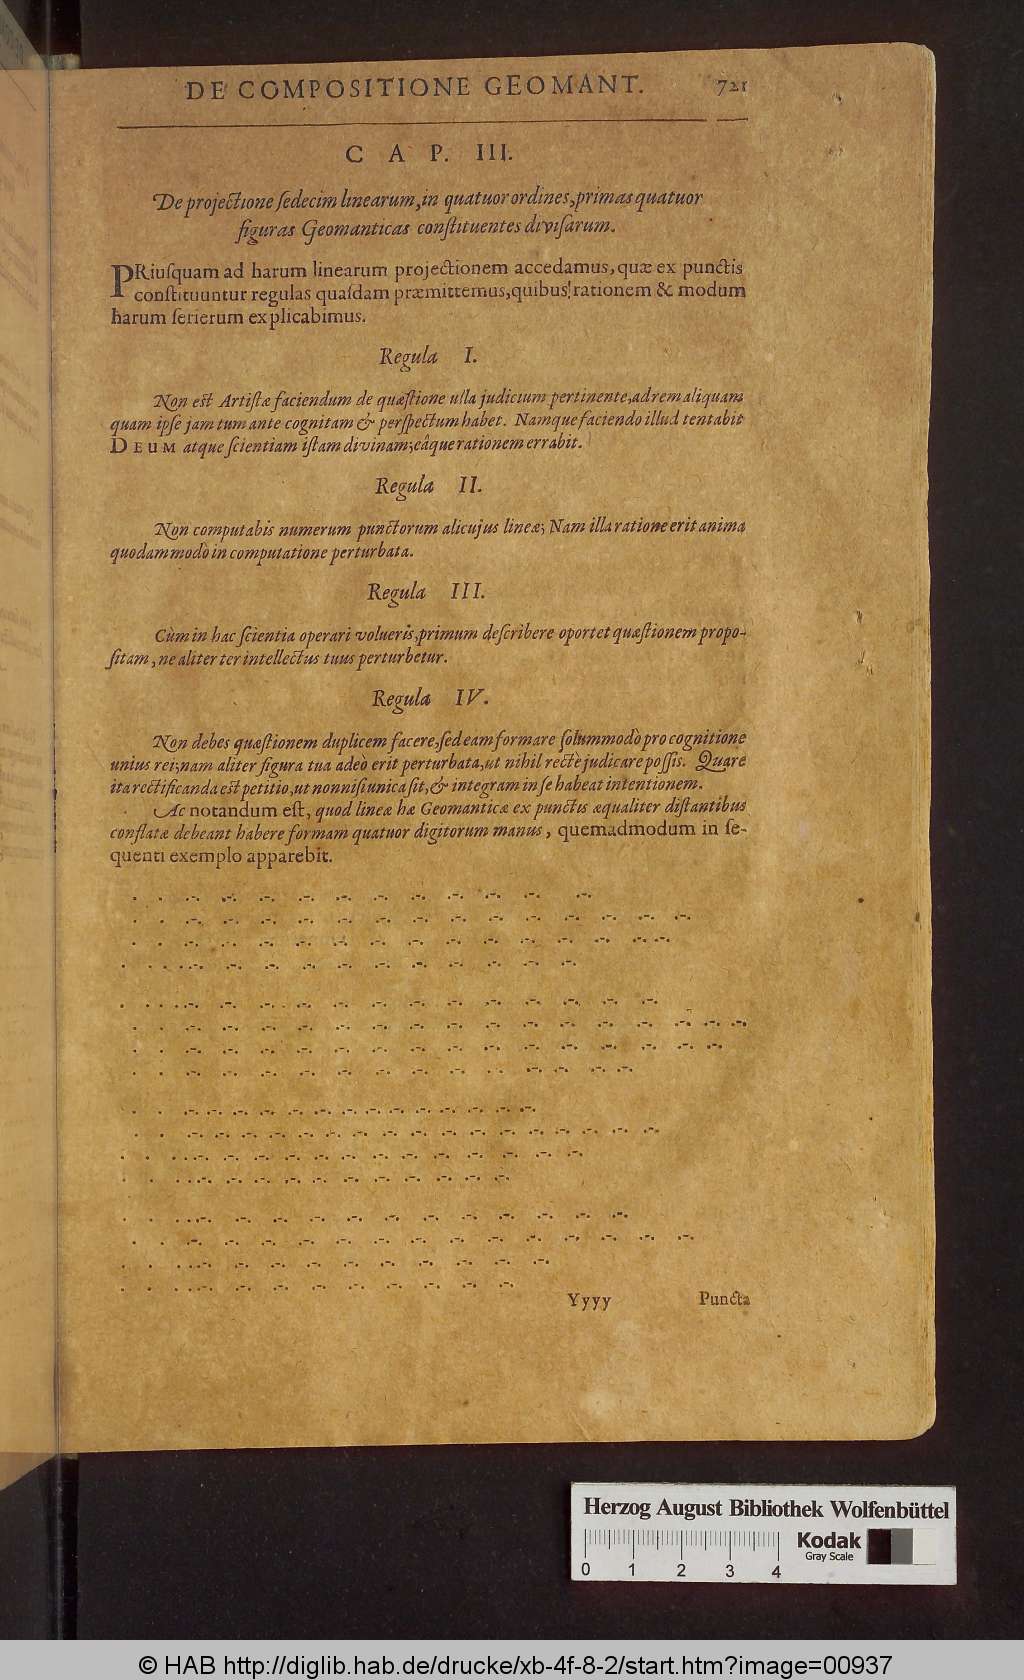 DE COMPOSITIONE GEOMANT. 721
CAP. III.
De projectione ſedecim linearum, in quatuor ordines, primas quatuor
figuras Geomanticas conſtituentes diviſarum.
PRiuſquam ad harum linearum projectionem accedamus, quæ ex punctis
conſtituuntur regulas quaſdam præmittemus, quibus rationem & modum
harum ſerierum explicabimus.
Regula I.
Non est Artiſtæ faciendum de quæſtione ulla judicium pertinente, ad rem aliquam
quam ipſe jam tum ante cognitam & perſpectum habet. Namque faciendo illud tentabit
DEUM atque ſcientiam iſtam divinam; eâque rationem errabit.
Regula II.
Non computabis numerum punctorum alicujus lineæ; Nam illa ratione erit anima
quodammodò in computatione perturbata.
Regula III.
Cùm in hac ſcientia operari volueris, primum deſcribere oportet quæſtionem propo-
ſitam, ne aliter ter intellectus tuus perturbetur.
Regula IV.
Non debes quæſtionem duplicem facere, ſed eam formare ſolummodò pro cognitione
unius rei; nam aliter figura tua adeò erit perturbata, ut nihil rectè judicare poſſis. Quare
ita rectificanda est petitio, ut non niſi unica ſit, & integram in ſe habeat intentionem.
Ac notandum eſt, quod lineæ hæ Geomanticæ ex punctis æqualiter diſtantibus
conflatæ debeant habere formam quatuor digitorum manus, quemadmodum in ſe-
quenti exemplo apparebit.
Yyyy Puncta
Herzog August Bibliothek Wolfenbüttel
Kodak
Gray Scale
0 1 2 3 4
© HAB http://diglib.hab.de/drucke/xb-4f-8-2/start.htm?image=00937